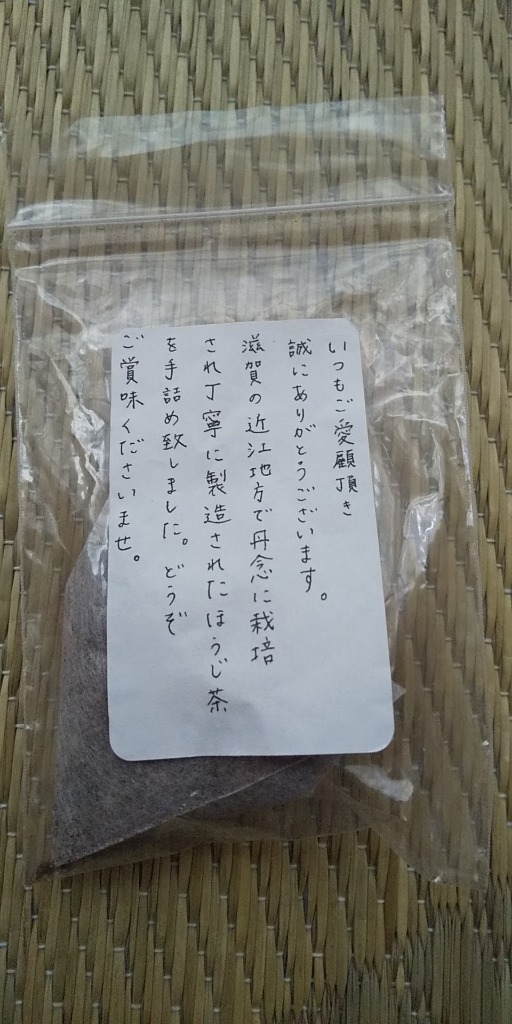 いつもご愛顧頂き
誠にありがとうございます。
滋賀の近江地方で丹念に栽培
され丁寧に製造されたほうじ茶
を手詰め致しました。どうぞ
ご賞味くださいませ。